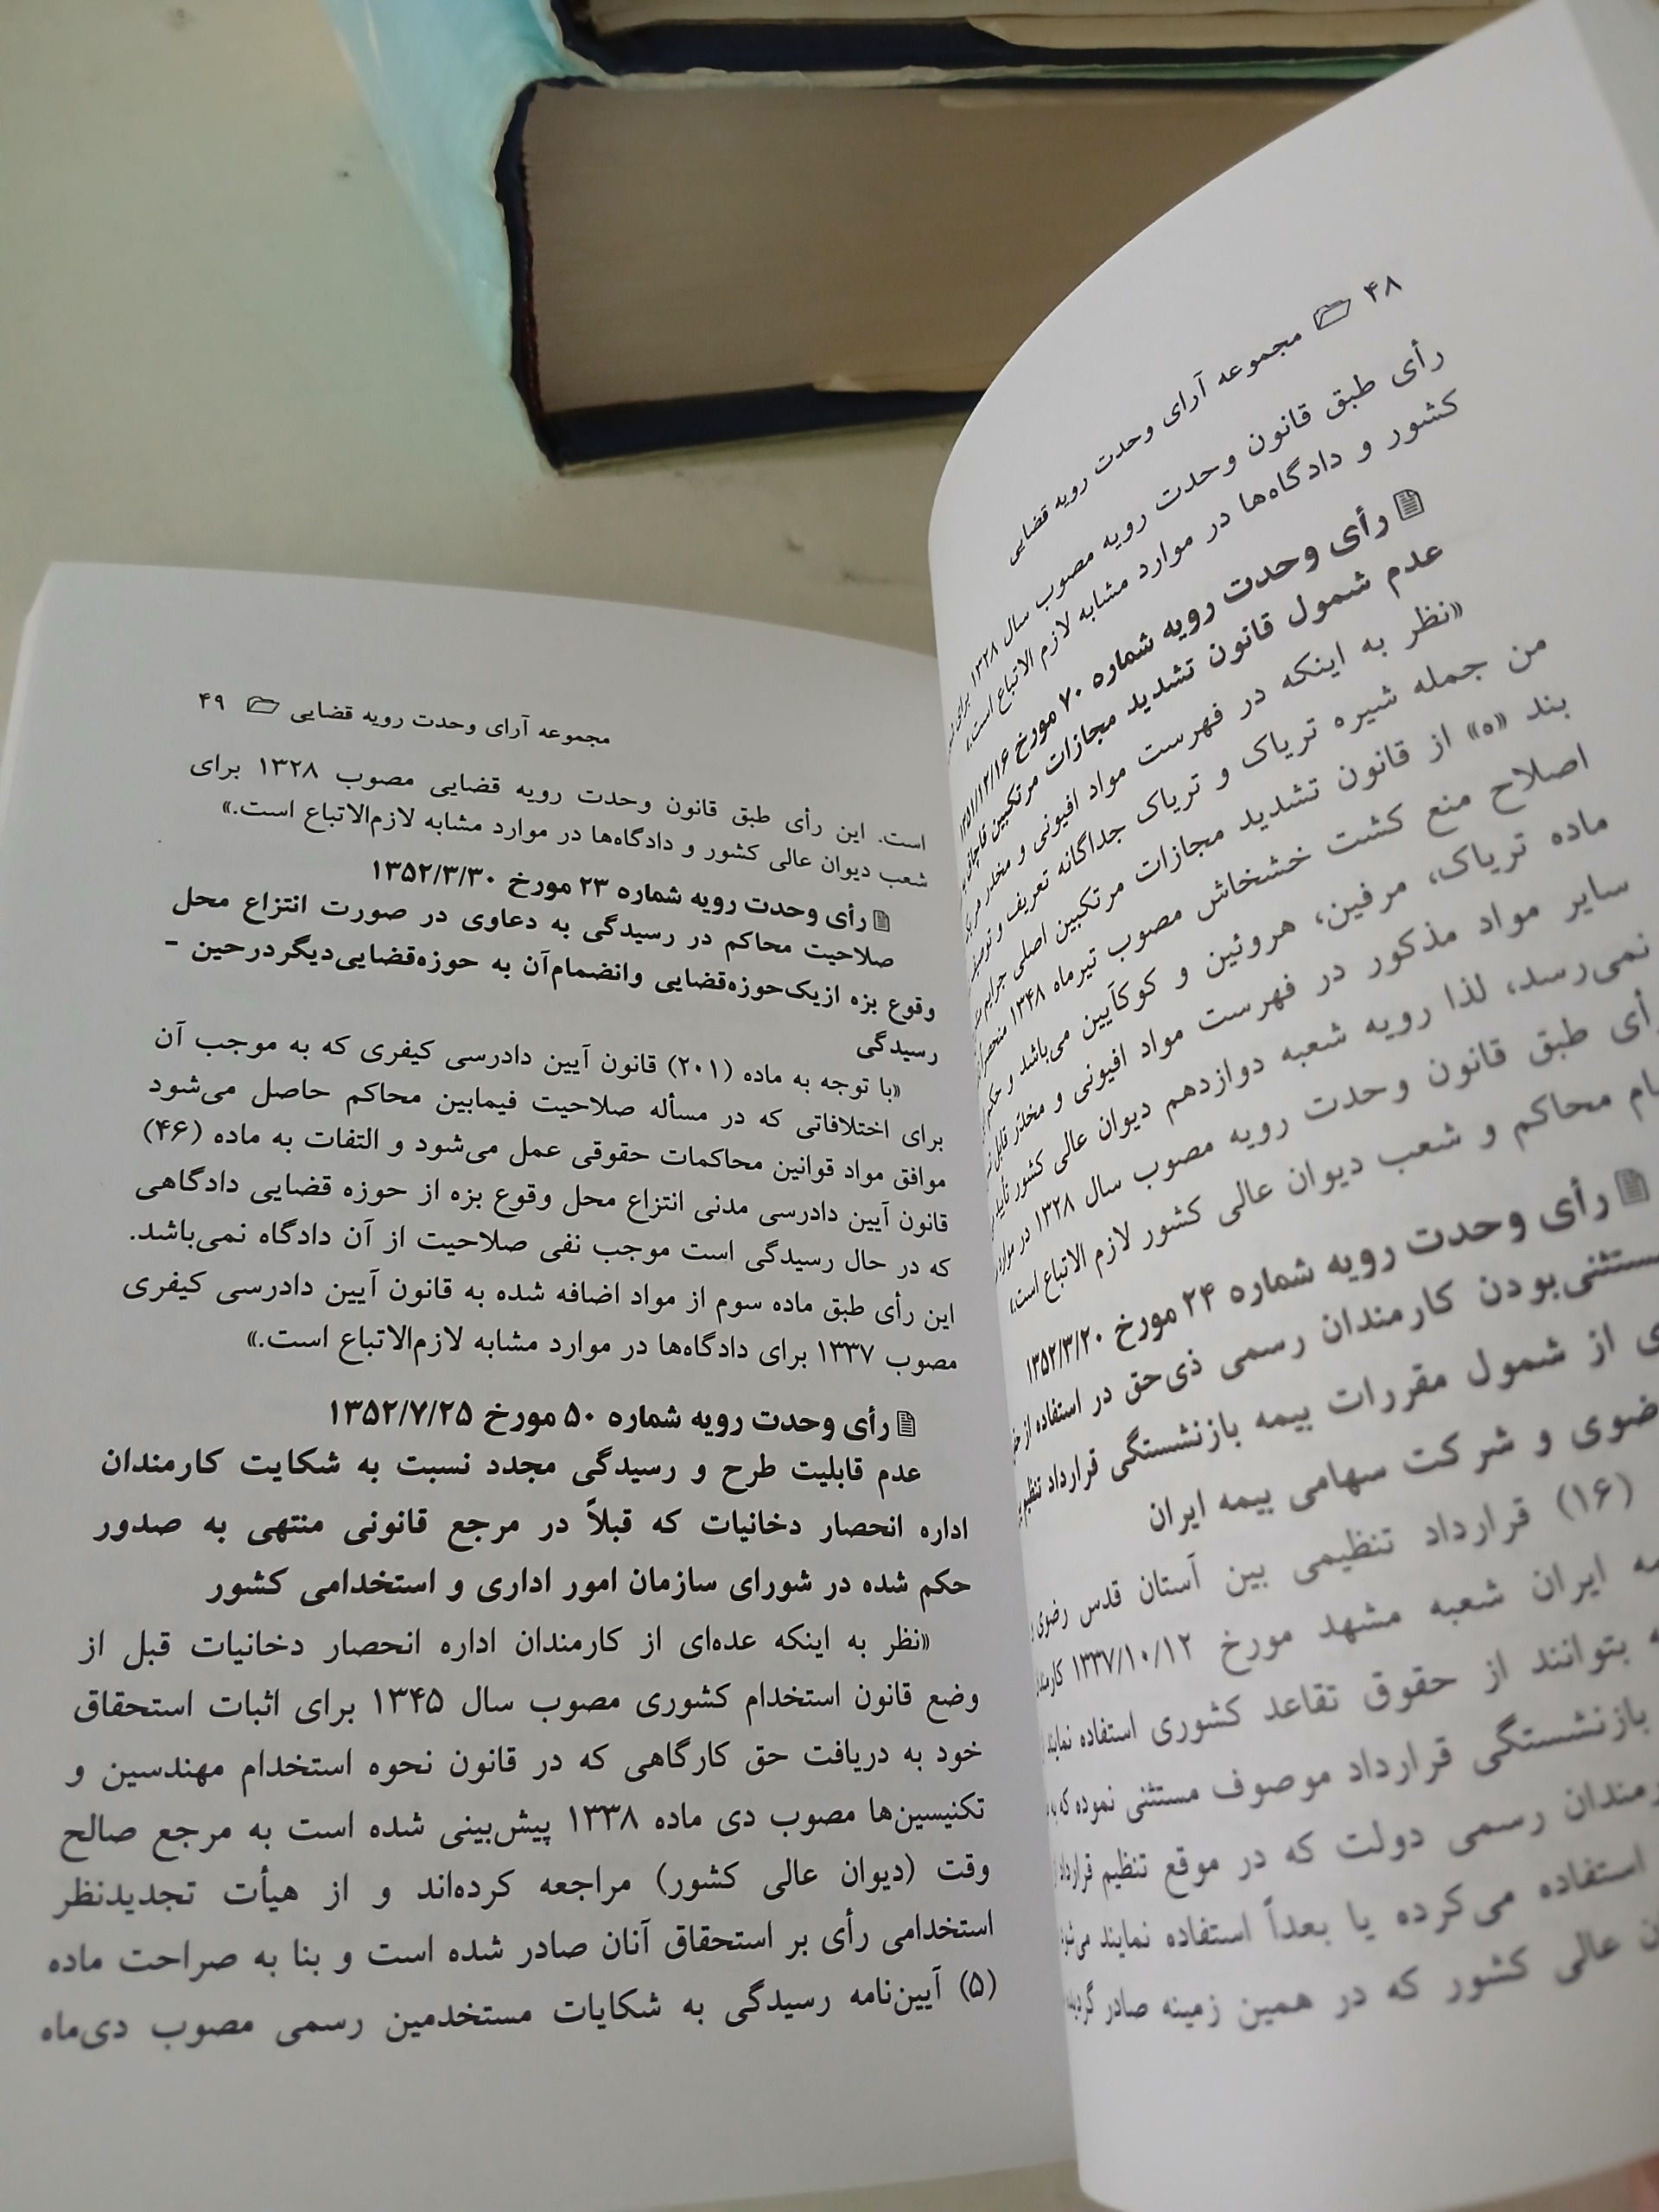 ۴۸ مجموعه آرای وحدت رویه قضایی
رأی طبق قانون وحدت رویه مصوب سال ۱۳۲۸ برای
کشور و دادگاه‌ها در موارد مشابه لازم الاتباع است.»
رأی وحدت رویه شماره ۷۰ مورخ ۱۳۵۱/۱۲/۱۶
عدم شمول قانون تشدید مجازات مرتکبین قاچاق
«نظر به اینکه در فهرست مواد افیونی و مخدر
من جمله شیره تریاک و تریاک جداگانه تعریف و
بند «ه» از قانون تشدید مجازات مرتکبین اصلی جرایم
اصلاح منع کشت خشخاش مصوب تیرماه ۱۳۴۸
ماده تریاک، مرفین، هروئین و کوکآیین می‌باشد و حکم
سایر مواد مذکور در فهرست مواد افیونی و مخدر قابل
نمی‌رسد، لذا رویه شعبه دوازدهم دیوان عالی کشور تأیید
طبق قانون وحدت رویه مصوب سال ۱۳۲۸ در
محاکم و شعب دیوان عالی کشور لازم الاتباع است.»
رأی وحدت رویه شماره ۲۴ مورخ ۱۳۵۲/۳/۲۰
کارمندان رسمی ذی‌حق در استفاده از
از شمول مقررات بیمه بازنشستگی قرارداد
و شرکت سهامی بیمه ایران
(۱۶) قرارداد تنظیمی بین آستان قدس رضوی
ایران شعبه مشهد مورخ ۱۳۳۷/۱۰/۱۲
بتوانند از حقوق تقاعد کشوری استفاده نمایند
بازنشستگی قرارداد موصوف مستثنی نموده
رسمی دولت که در موقع تنظیم قرارداد
استفاده می‌کرده یا بعداً استفاده نمایند
عالی کشور که در همین زمینه صادر
مجموعه آرای وحدت رویه قضایی ۴۹
است. این رأی طبق قانون وحدت رویه قضایی مصوب ۱۳۲۸ برای
شعب دیوان عالی کشور و دادگاه‌ها در موارد مشابه لازم‌الاتباع است.»
رأی وحدت رویه شماره ۲۳ مورخ ۱۳۵۲/۳/۳۰
صلاحیت محاکم در رسیدگی به دعاوی در صورت انتزاع محل
وقوع بزه ازیک‌حوزه‌قضایی وانضمام‌آن به حوزه‌قضایی‌دیگردرحین -
رسیدگی
«با توجه به ماده (۲۰۱) قانون آیین دادرسی کیفری که به موجب آن
برای اختلافاتی که در مسأله صلاحیت فیمابین محاکم حاصل می‌شود
موافق مواد قوانین محاکمات حقوقی عمل می‌شود و التفات به ماده (۴۶)
قانون آیین دادرسی مدنی انتزاع محل وقوع بزه از حوزه قضایی دادگاهی
که در حال رسیدگی است موجب نفی صلاحیت از آن دادگاه نمی‌باشد.
این رأی طبق ماده سوم از مواد اضافه شده به قانون آیین دادرسی کیفری
مصوب ۱۳۳۷ برای دادگاه‌ها در موارد مشابه لازم‌الاتباع است.»
رأی وحدت رویه شماره ۵۰ مورخ ۱۳۵۲/۷/۲۵
عدم قابلیت طرح و رسیدگی مجدد نسبت به شکایت کارمندان
اداره انحصار دخانیات که قبلاً در مرجع قانونی منتهی به صدور
حکم شده در شورای سازمان امور اداری و استخدامی کشور
«نظر به اینکه عده‌ای از کارمندان اداره انحصار دخانیات قبل از
وضع قانون استخدام کشوری مصوب سال ۱۳۴۵ برای اثبات استحقاق
خود به دریافت حق کارگاهی که در قانون نحوه استخدام مهندسین و
تکنیسین‌ها مصوب دی ماده ۱۳۳۸ پیش‌بینی شده است به مرجع صالح
وقت (دیوان عالی کشور) مراجعه کرده‌اند و از هیأت تجدیدنظر
استخدامی رأی بر استحقاق آنان صادر شده است و بنا به صراحت ماده
(۵) آیین‌نامه رسیدگی به شکایات مستخدمین رسمی مصوب دی‌ماه